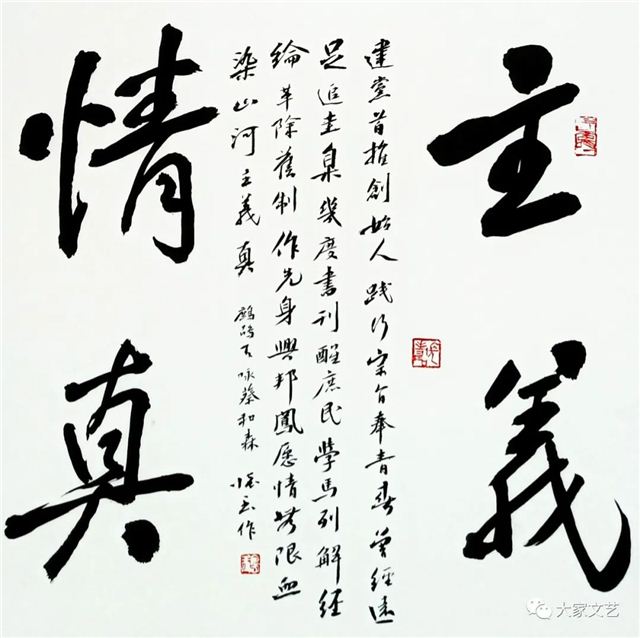 主義
建黨首創始人踐行宗旨奉青春曾經遠
足追圭臬幾度書刊醒庶民學馬列解經
綸革除舊制作先身興邦鳳愿情無限血
染山河主義真 鷓鴣天 詠蔡和森 作
情真
大家文艺